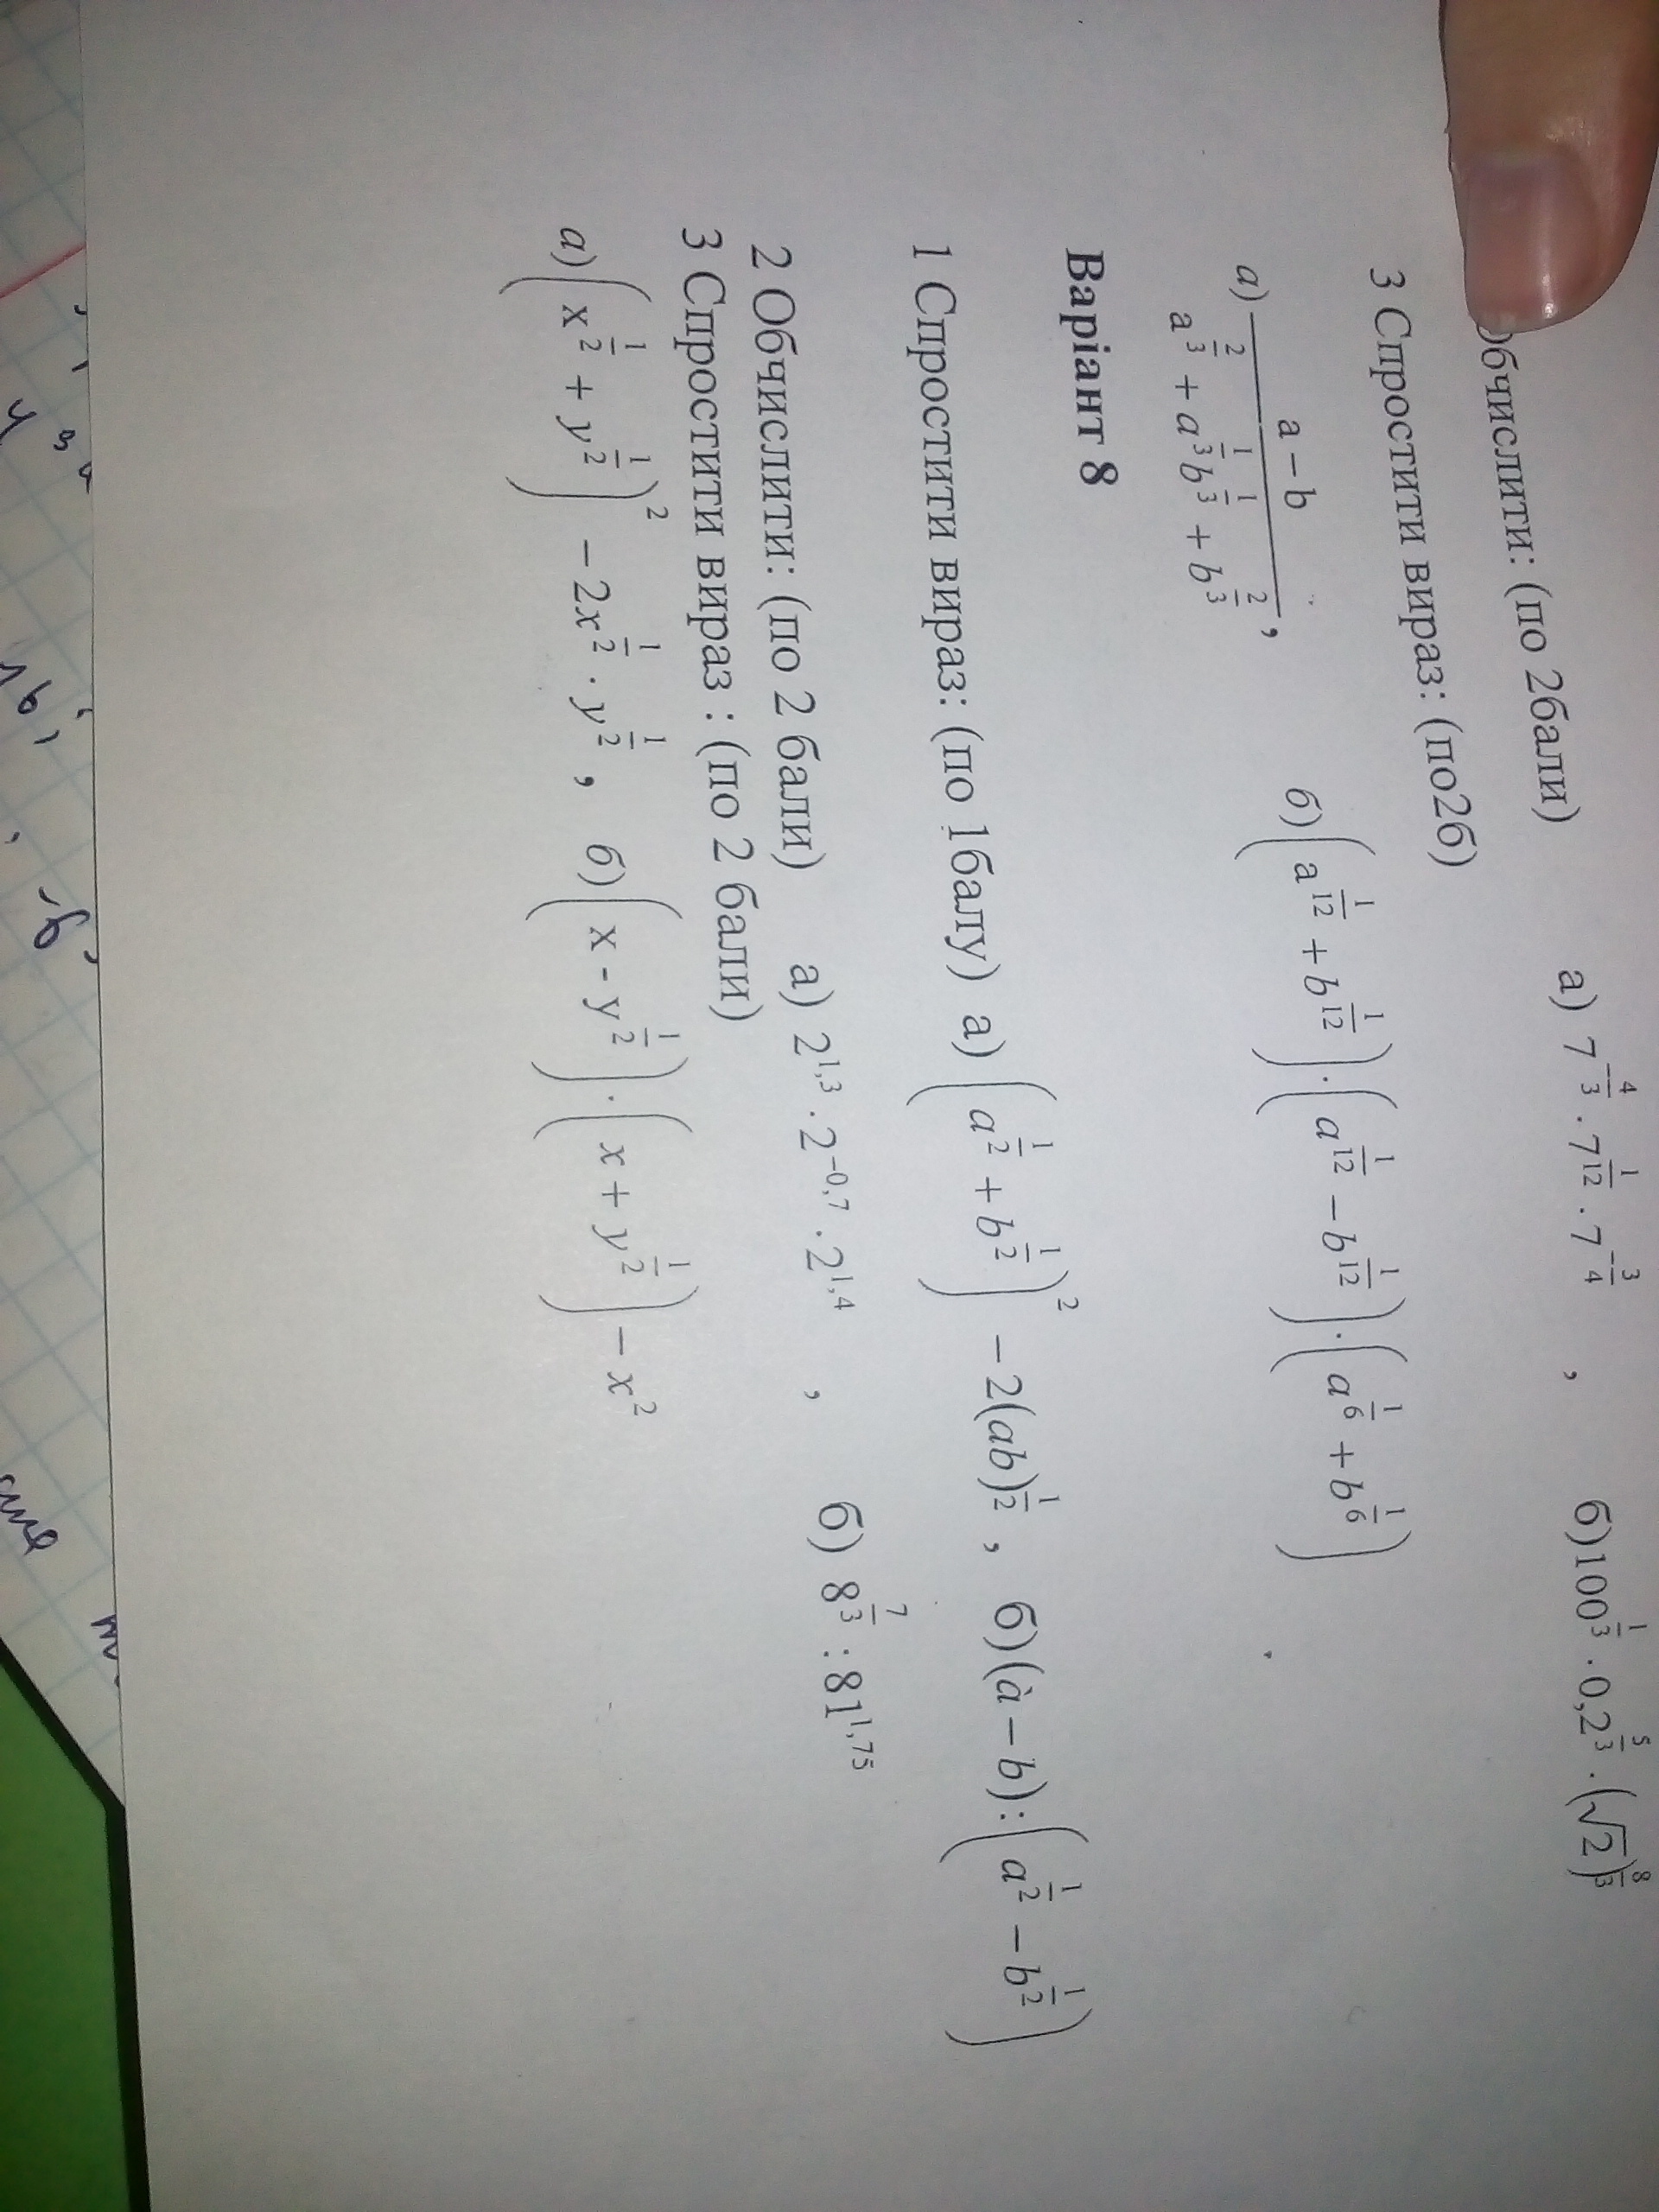 Обчислити: (по 2бали) а) 7^{-4/3} · 7^{1/12} · 7^{-3/4} , б)100^{1/3} · 0,2^{5/3} · (√2)^{8/3}
3 Спростити вираз: (по2б)
а) (a − b)/(a^{2/3} + a^{1/3}b^{1/3} + b^{2/3}), б)(a^{1/12} + b^{1/12}) · (a^{1/12} − b^{1/12}) · (a^{1/6} + b^{1/6})
Варіант 8
1 Спростити вираз: (по 1балу) а) (a^{1/2} + b^{1/2})^2 − 2(ab)^{1/2} , б)(à − b):(a^{1/2} − b^{1/2})
2 Обчислити: (по 2 бали) а) 2^{1,3} · 2^{−0,7} · 2^{1,4} , б) 8^{7/3} : 81^{1,75}
3 Спростити вираз : (по 2 бали)
а)(x^{1/2} + y^{1/2})^2 − 2x^{1/2} · y^{1/2} , б)(x - y^{1/2}) · (x + y^{1/2}) − x^2